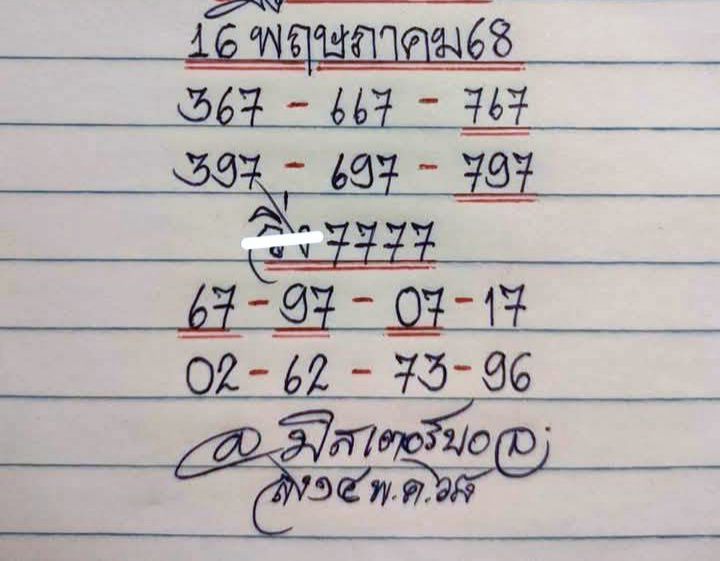 16 พฤษภาคม68
367 - 667 - 767
397 - 697 - 797
วิ่ง 7777
67 - 97 - 07 - 17
02 - 62 - 73 - 96
มิสเตอร์บอ
พ.ค.